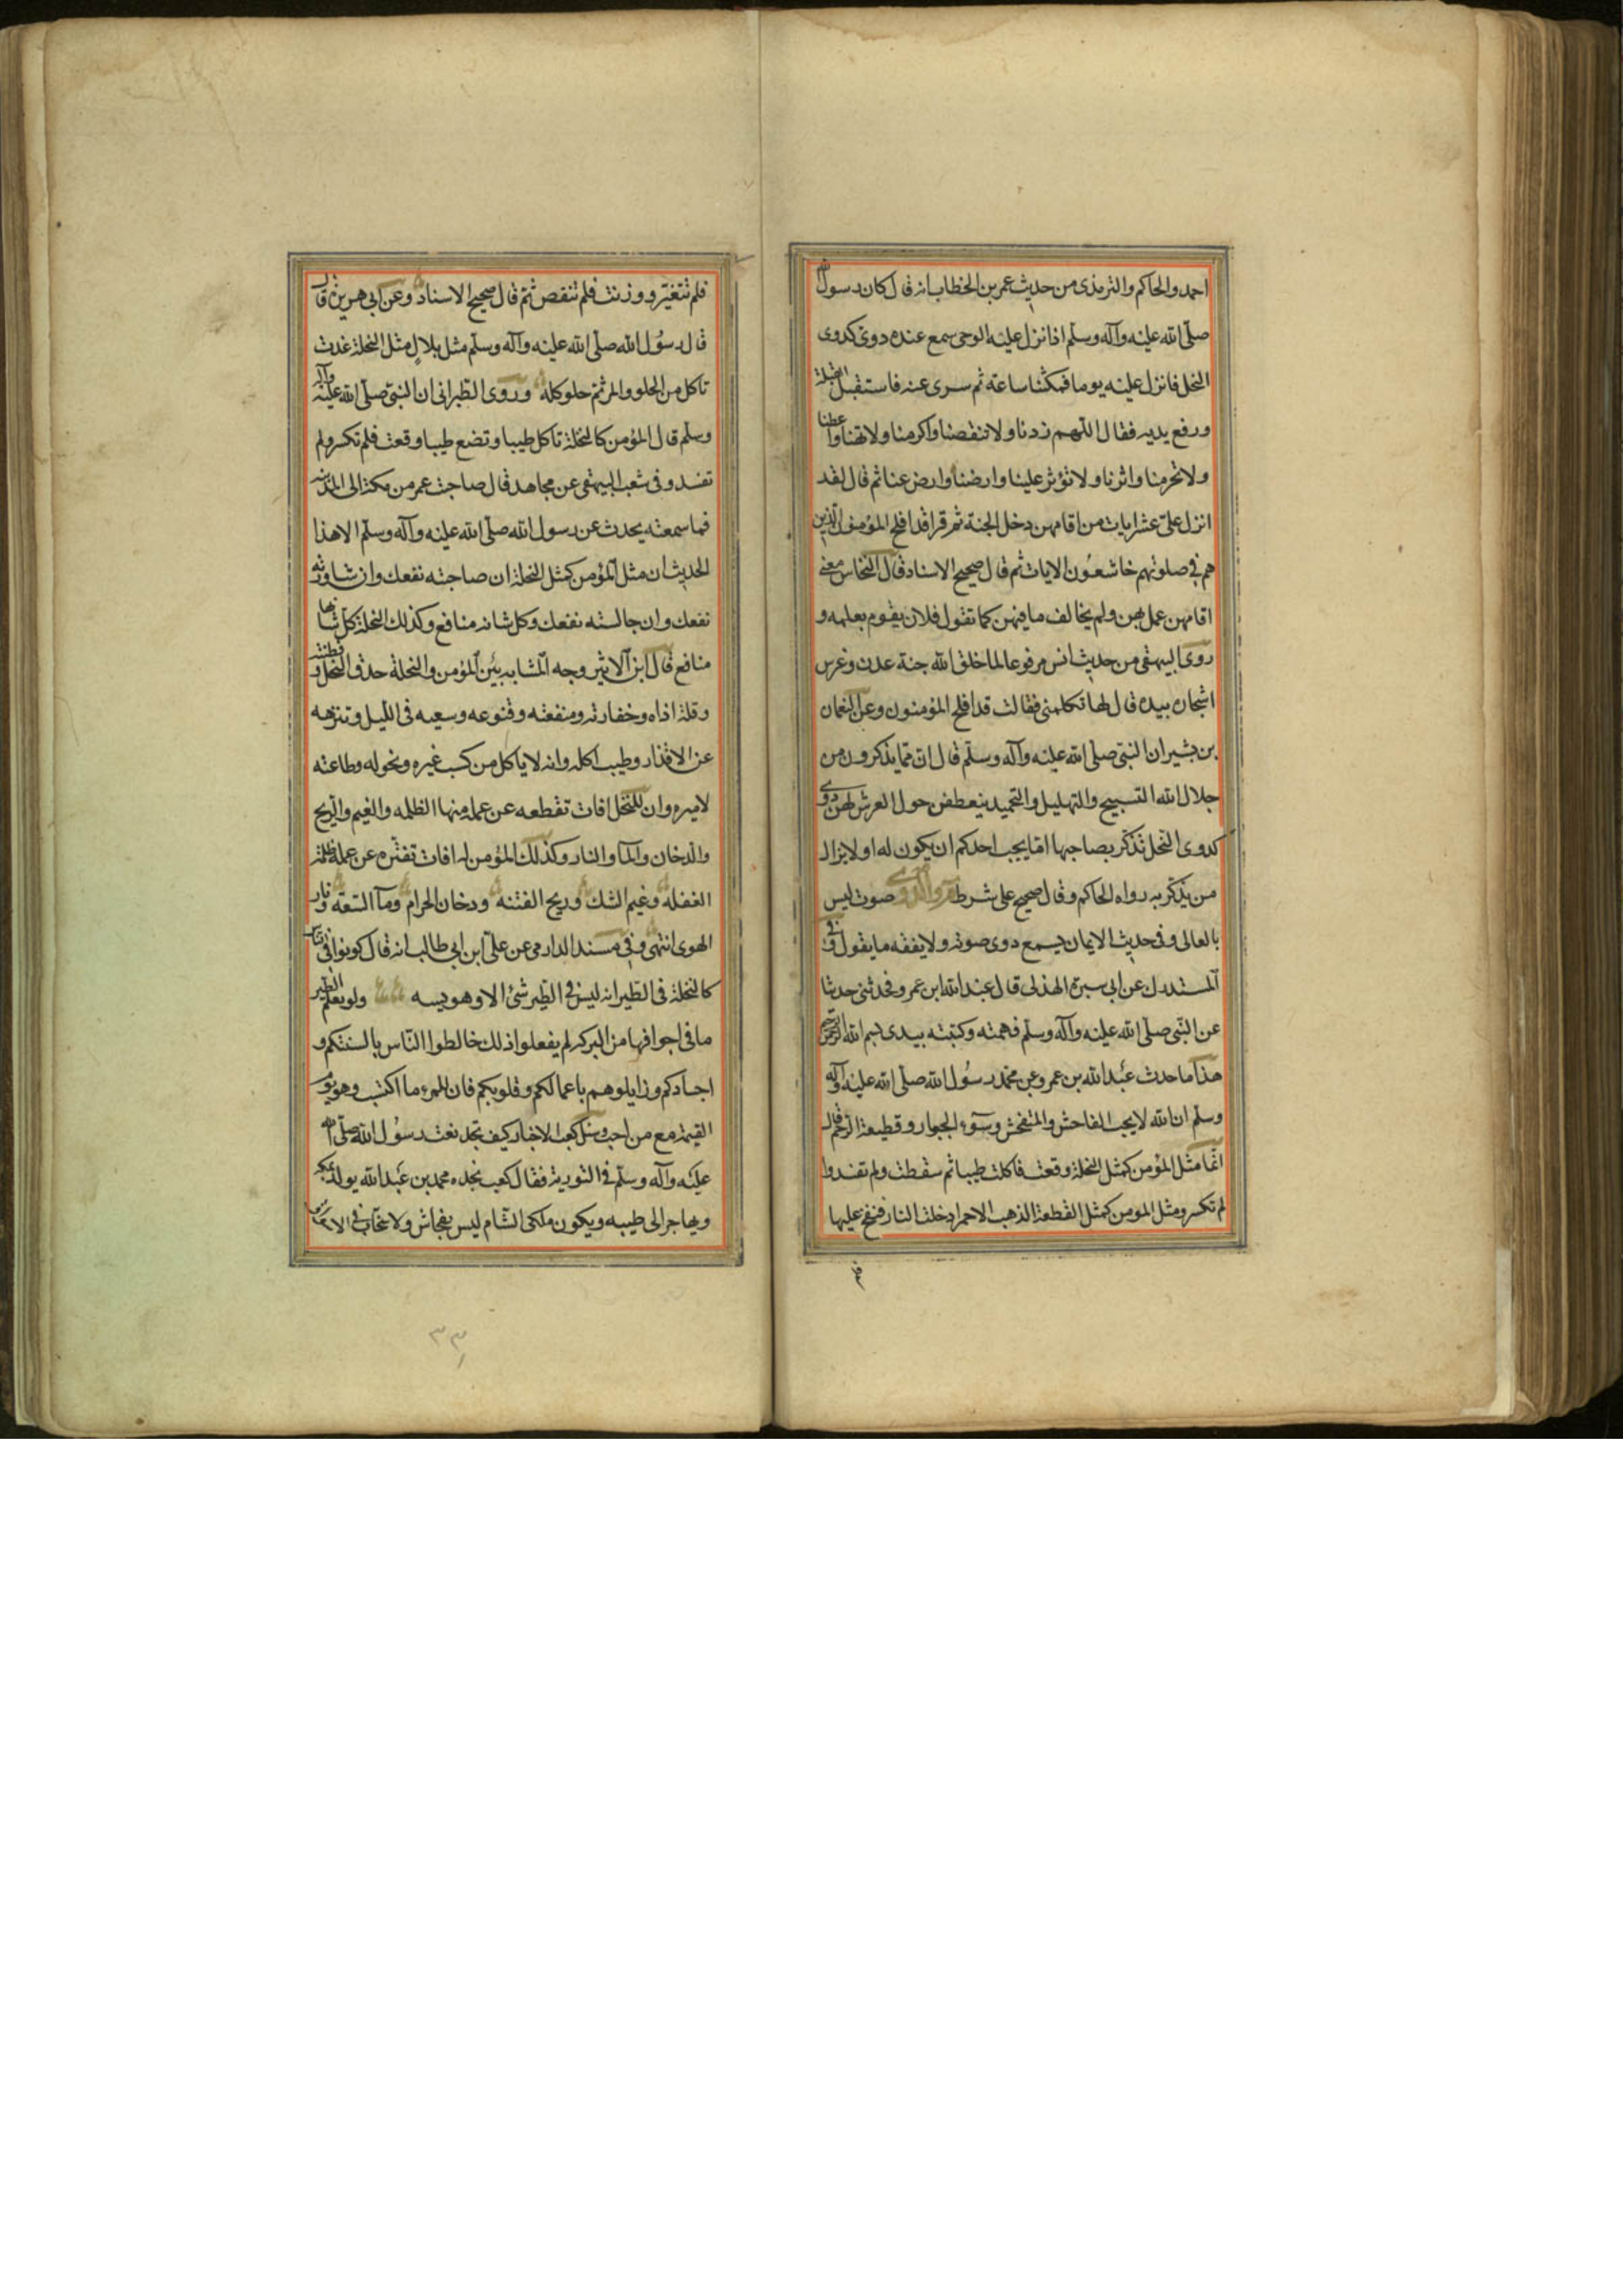 احمد والحاكم والترمذى من حديث عمر بن الخطاب انه قال كان رسول الله
صلى الله عليه وآله وسلم اذا نزل عليه الوحى سمع عنده دوى كدوى
النحل فانزل عليه يوما فمكثنا ساعته ثم سرى عنه فاستقبل القبلة
ورفع يديه فقال اللهم زدنا ولا تنقصنا واكرمنا ولا تهنا واعطنا
ولا تحرمنا واثرنا ولا تؤثر علينا وارضنا وارض عنا ثم قال لقد
انزل على عشر ايات من اقامهن دخل الجنة ثم قرا قد افلح المؤمنون الذين
هم فى صلوتهم خاشعون الايات ثم قال صحيح الاسناد قال النحاس معنى
اقامهن عمل بهن ولم يخالف ما فيهن كما تقول فلان يقوم بعلمه و
روى البيهقى من حديث انس مرفوعا لما خلق الله جنة عدن وغرس
اشجاره بيده قال لها تكلمنى فقالت قد افلح المؤمنون وعن النعمان
بن بشير ان النبى صلى الله عليه وآله وسلم قال ان مما يذكرون من
جلال الله التسبيح والتهليل والتحميد ينعطفن حول العرش لهن دوى
كدوى النحل تذكر بصاحبها افا يحب احدكم ان يكون له او لا يزال
من يذكر به رواه الحاكم وقال صحيح على شرط م والدوى صوت ليس
بالعالى وفى حديث الايمان يسمع دوى صوته ولا يفقه ما يقول وفى
المستدرك عن ابى سبرة الهذلى قال عبد الله ابن عمرو فحدثنى حديثا
عن النبى صلى الله عليه وآله وسلم فهمته وكتبته بيدى بسم الله الرحمن الرحيم
هذا ما حدث عبد الله بن عمرو عن محمد رسول الله صلى الله عليه وآله
وسلم ان الله لا يحب الفاحش والمتفحش وسوء الجوار وقطيعة الرحم قال
انما مثل المؤمن كمثل النحلة وقعت فاكلت طيبا ثم سقطت ولم تفسد وا
لم تكسر ومثل المومن كمثل القطعة الذهب الاحمر ادخلت النار فنفخ عليها
فلم تتغير ووزنت فلم تنقص ثم قال صحيح الاسناد وعن ابى هريرة قال
قال رسول الله صلى الله عليه وآله وسلم مثل بلال مثل النحلة غدت
تاكل من الحلو والمر ثم حلو كله وروى الطبرانى ان النبى صلى الله عليه وآله
وسلم قال المؤمن كالنحلة تاكل طيبا وتضع طيبا وقعت فلم تكسر ولم
تفسد وفى شعب البيهقى عن مجاهد قال صاحبت عمر من مكة الى المدينة
فما سمعته يحدث عن رسول الله صلى الله عليه وآله وسلم الا هذا
الحديث ان مثل المؤمن كمثل النحلة ان صاحبته نفعك وان شاورته
نفعك وان جالسته نفعك وكل شانه منافع وكذلك النحلة كل شانها
منافع قال ابن الاثير وجه المشابه بين المؤمن والنحلة حذق النحل وفطنته
وقلة اذاه وخفارته ومنفعته وقنوعه وسعيه فى الليل وتنزهه
عن الاقذار وطيب اكله وانه لا ياكل من كسب غيره ونحوله وطاعته
لاميره وان للنحل افات تقطعه عن عمله منها الظلمه والغيم والريح
والدخان والماء والنار وكذلك المؤمن له افات تفتره عن عمله ظلمة
الغفلة وغيم الشك وريح الفتنه ودخان الحرام وماء السعة ونار
الهوى انتهى وفى مسند الدارمى عن على ابن ابى طالب انه قال كونوا فى الناس
كالنحلة فى الطير انه ليس فى الطير شئ الا وهو يسه ولو يعلم الطير
ما فى اجوافها من البركه لم يفعلوا ذلك خالطوا الناس بالسنتكم و
اجسادكم وزايلوهم باعمالكم وقلوبكم فان للمرء ما اكتسب وهو يوم
القيمة مع من احب وسئل كعب الاخبار كيف تجد نعت رسول الله صلى الله
عليه وآله وسلم فى التورية فقال كعب نجده محمد بن عبد الله يولد بمكه
ويهاجر الى طيبه ويكون ملكه الشام ليس بفحاش ولا سخاب فى الاسواق
٣٣